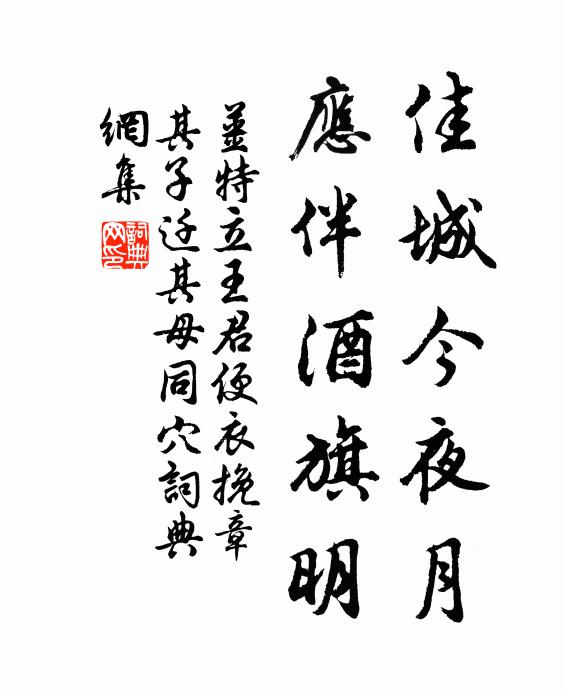 佳城今夜月
應伴酒旗明
姜特立王君便衣挽章
其子迁其母同穴詞典
網集
詞典網印